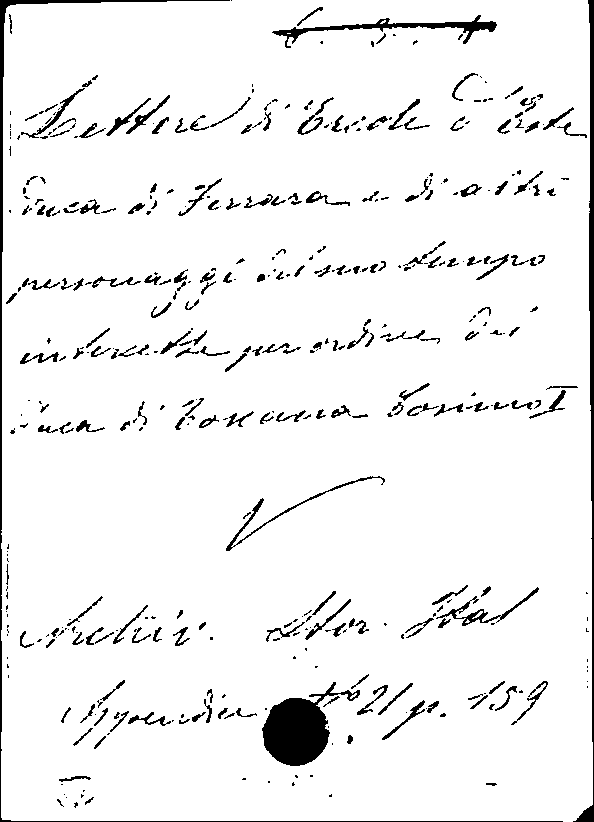 6. 3. 4
Lettere di Ercole d'Este
Duca di Ferrara e di altri
personaggi del suo tempo
intercette per ordine del
Duca di Toscana Cosimo I
Archiv. Stor. Ital
Appendice No 21 p. 159